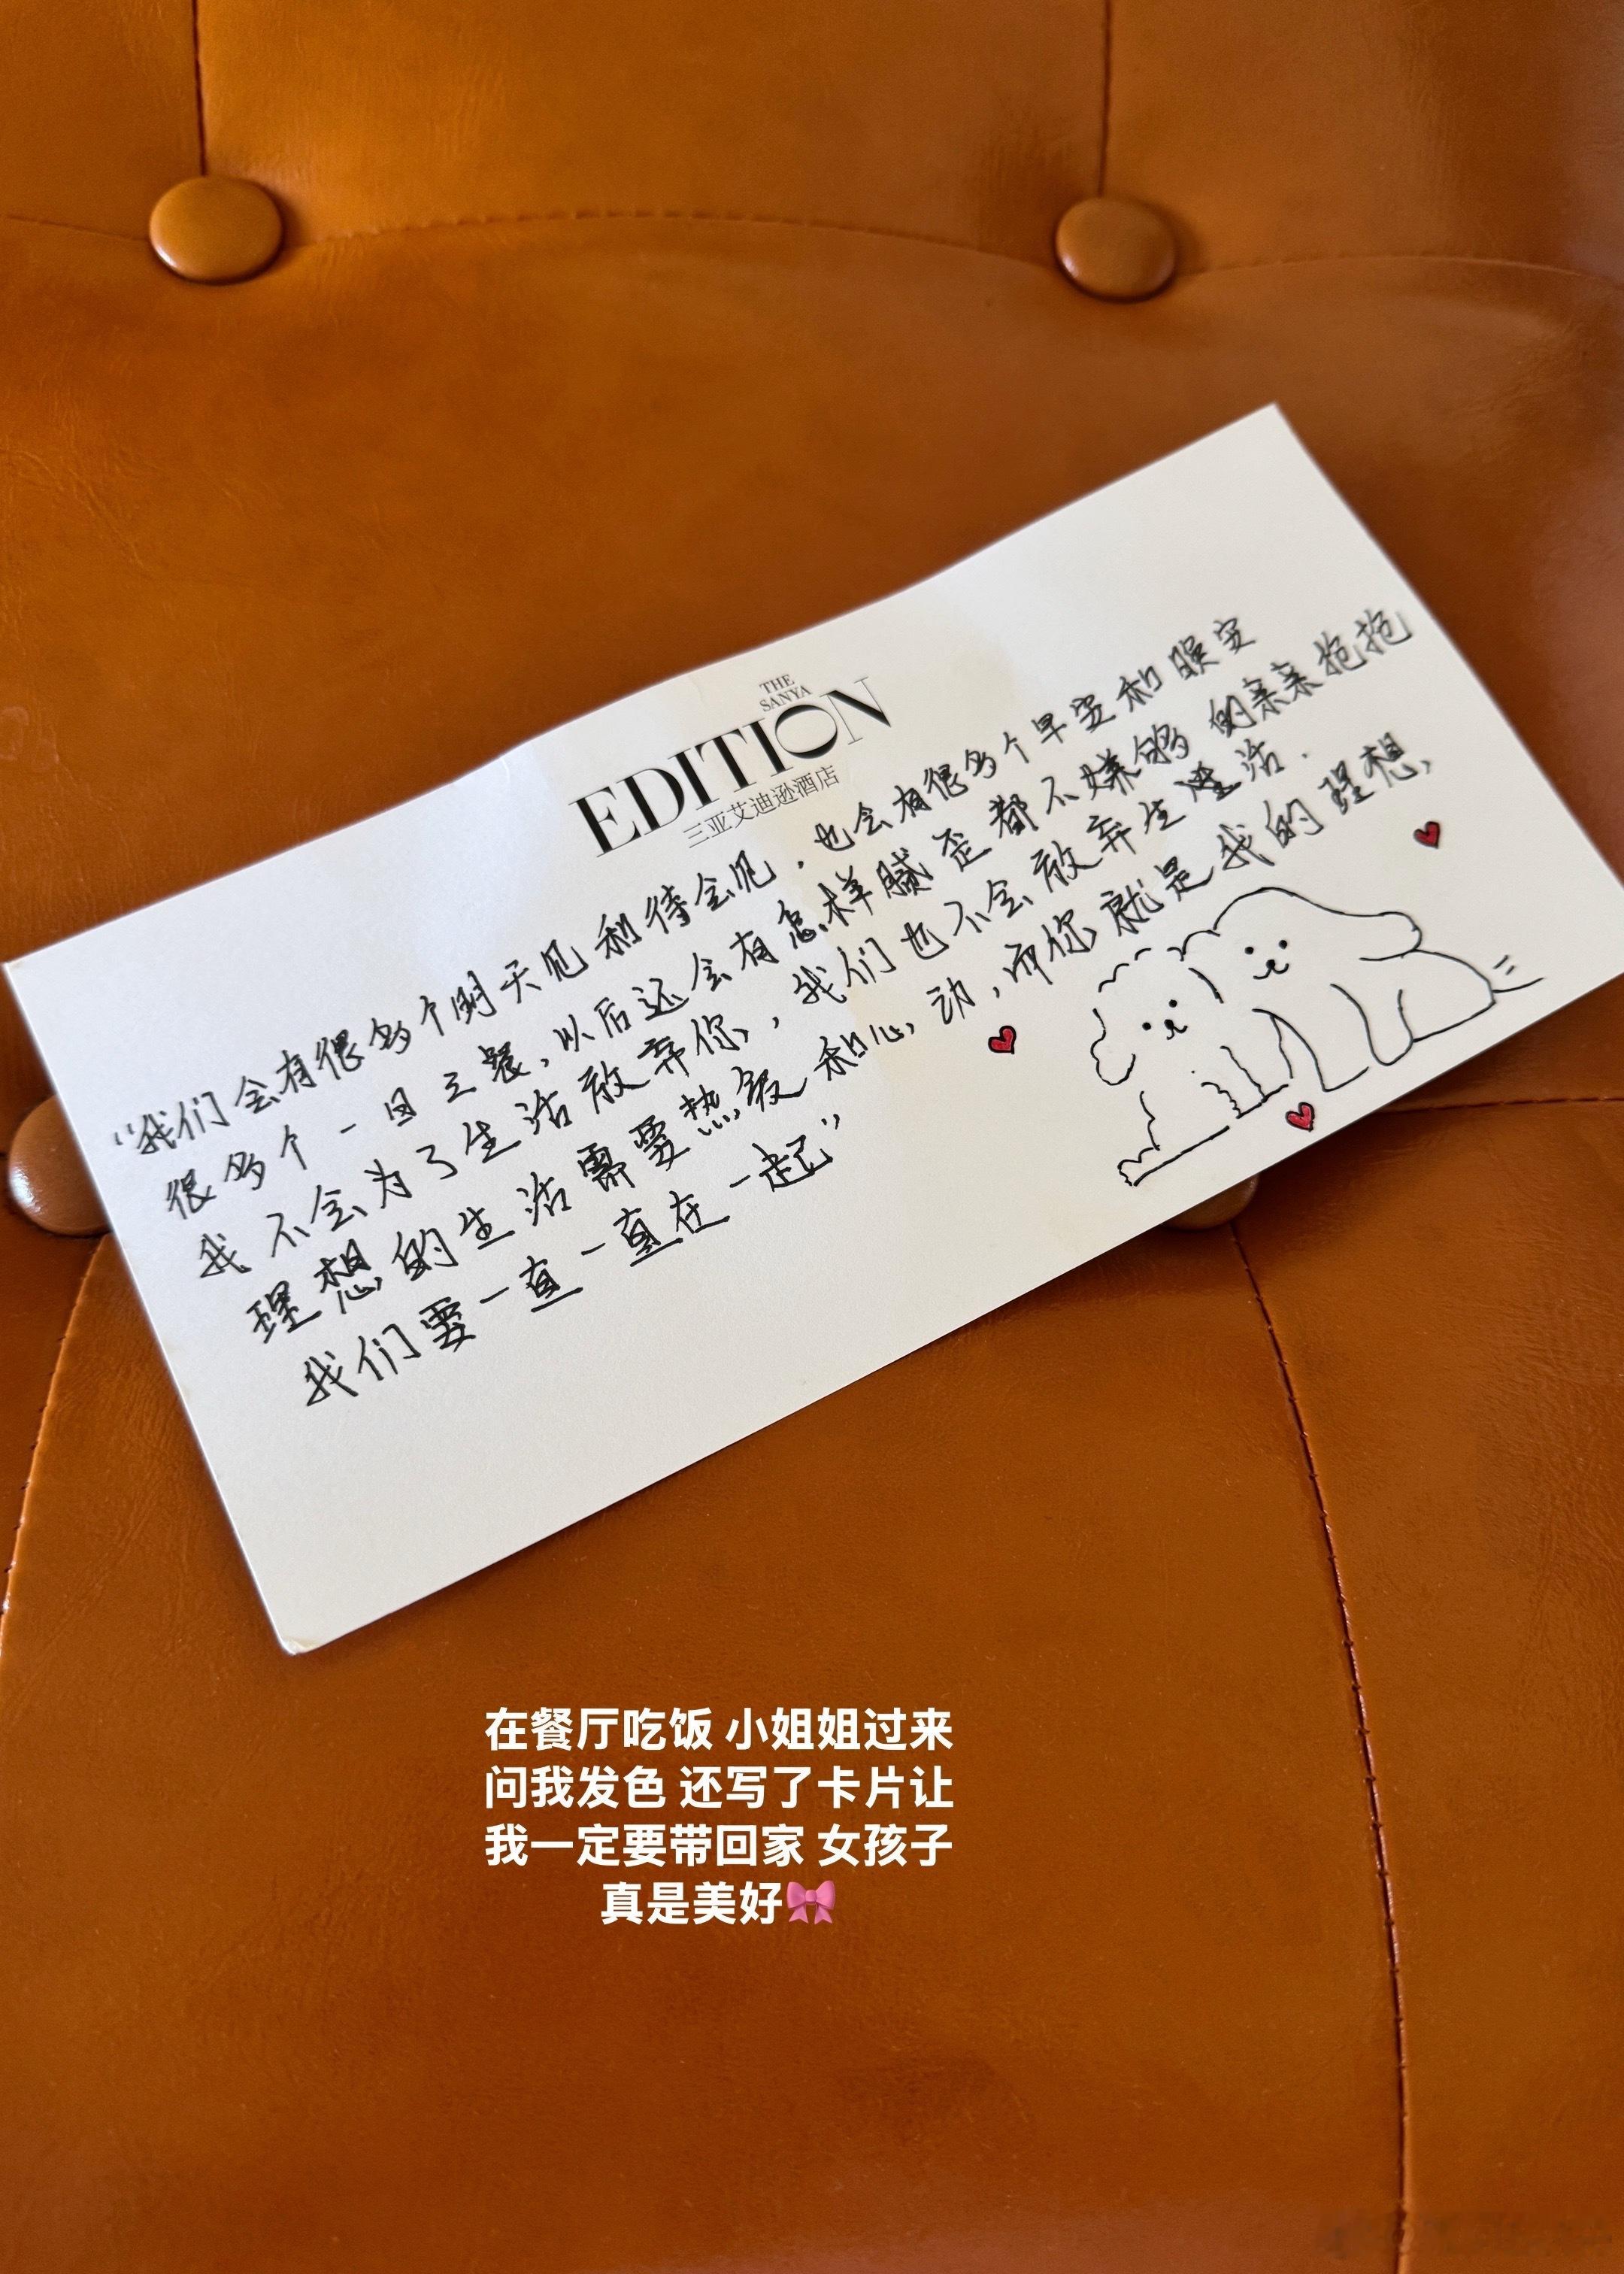 THE
SANYA
EDITION
三亚艾迪逊酒店
“我们会有很多个明天见和待会见，也会有很多个早安和晚安
很多个一日三餐，以后还会有怎样腻歪都不嫌够的亲亲抱抱
我不会为了生活放弃你，我们也不会放弃生活.
理想的生活需要热爱和心动，而你就是我的理想，
我们要一直一直在一起”
在餐厅吃饭 小姐姐过来
问我发色 还写了卡片让
我一定要带回家 女孩子
真是美好🎀